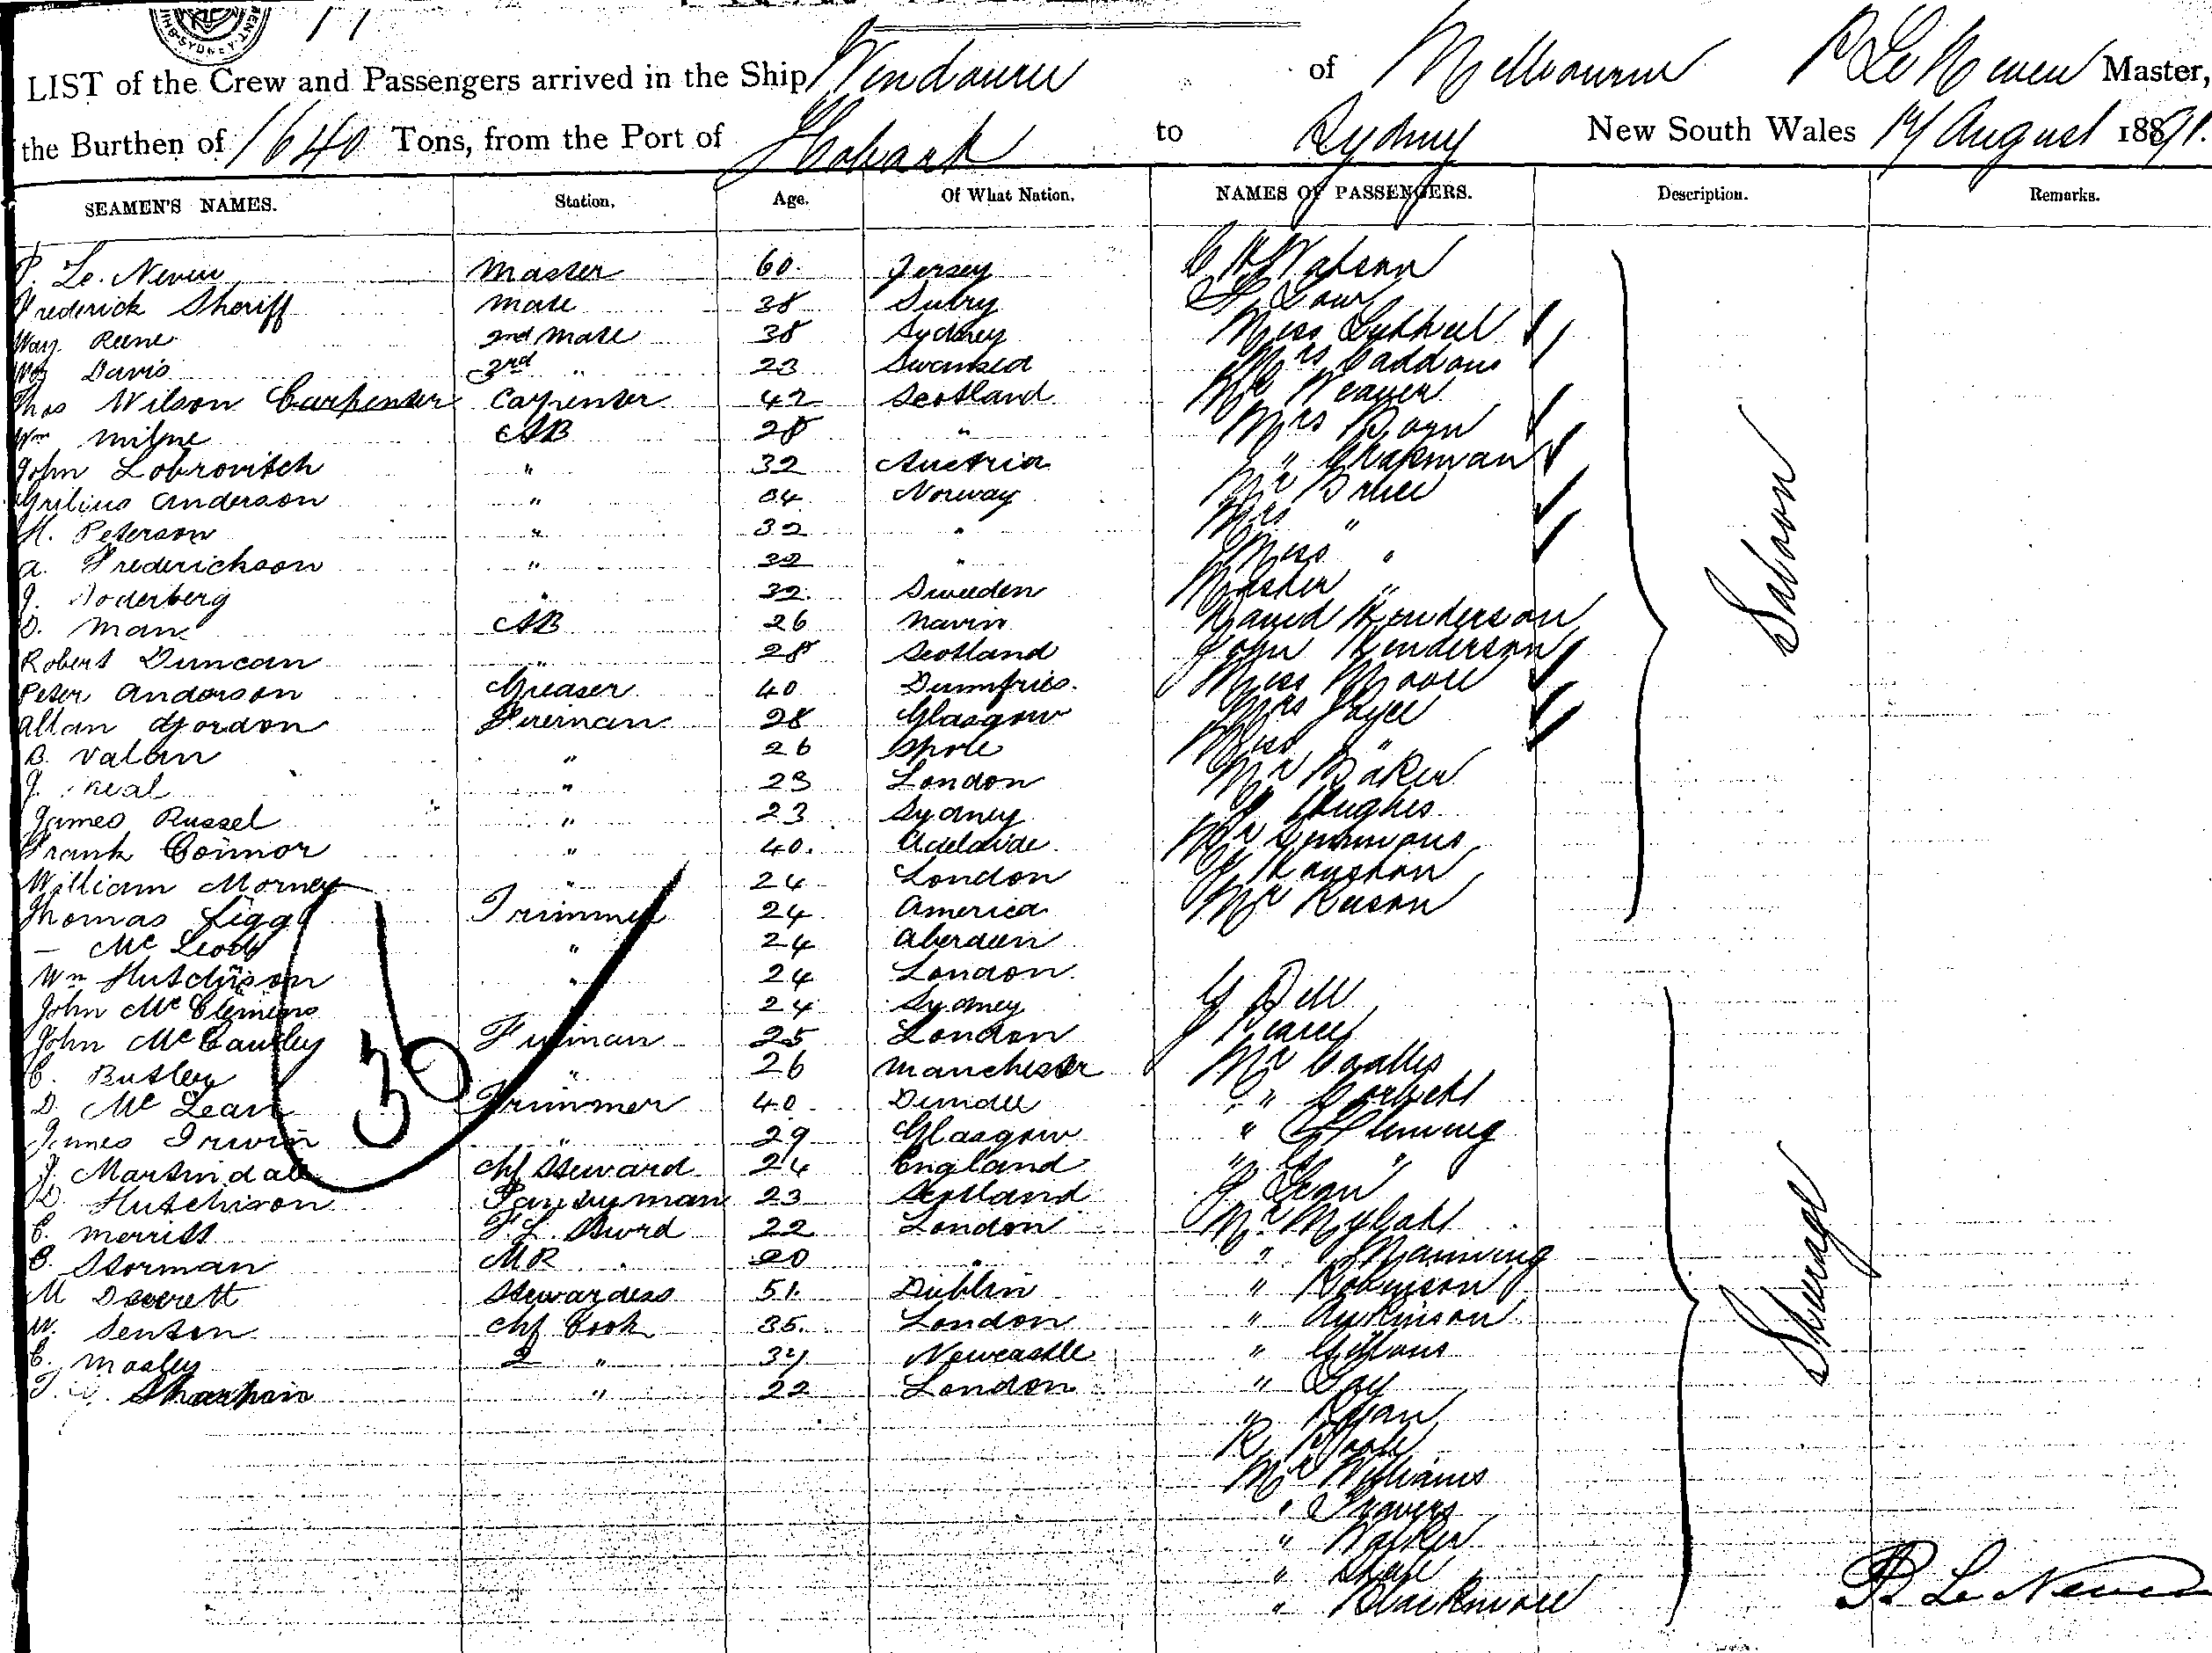 LIST of the Crew and Passengers arrived in the Ship Wendouree of Melbourne P Le Neveu Master,
the Burthen of 1640 Tons, from the Port of Hobart to Sydney New South Wales 17 August 1891.
SEAMEN'S NAMES. Station, Age. Of What Nation. NAMES OF PASSENGERS. Description. Remarks.
P. Le. Neveu Master 60. Jersey C W Watson
Frederick Sheriff Mate 38 F Law
Reene 2nd Mate 38 Sydney Miss
Davis 3rd " 23 Swansea Mrs Caddons
Thos Wilson Carpenter Carpenter 42 Scotland Mr Weaver
Wm Milne AB 28 " Mrs Born
John Lobrovitch " 32 Austria " Chapman
Anderson " 34 Norway Mr Bruce
H. Peterson " 32 " Mrs "
A. Frederickson " 32 " Miss "
J. Soderberg " 32. Sweden Master "
D. Man AB 26 Nairn David Henderson
Robert Duncan " 28 Scotland John Henderson
Peter Anderson Greaser 40 Dumfries. Miss Moore
Allan Gordon Fireman 28 Glasgow Mrs Joyce
B. Valan " 26 Miss "
J. Neal " 23 London Mr Baker
James Russel " 23 Sydney Hughes
Frank Connor " 40. Adelaide Mr Simmons
William Morney " 24 London
Thomas Ligg Trimmer 24 America Mr Keeson
— Mc Leod " 24 Aberdeen
Wm Hutchison " 24 London
John Mc Clemens " 24 Sydney G Bell
John Mc Cauley Fireman 25 London J Pearce
C. Butler " 26 Manchester Mr
D. Mc Lean Trimmer 40 Dundee " Corbett
James Irwin " 29 Glasgow " Fleming
J. Martindale Chf Steward 24 England " G "
D. Hutchison Pantryman 23 Scotland J
C. Merritt F.S. Stwrd 22 London Mr
C. Storman MR 20 " " Manning
M Deverett Stewardess 51. Dublin " Robinson
W. Senton Chf Cook 35. London " Aitkinson
C. Mosley 2 " 34 Newcastle " Gibbons
T. " 22 London " Day
" Ryan
R Poole
Mr Williams
" Travers
" Walker
" Shaw
" Blackmore
Saloon
Steerage
36
P. Le Neveu